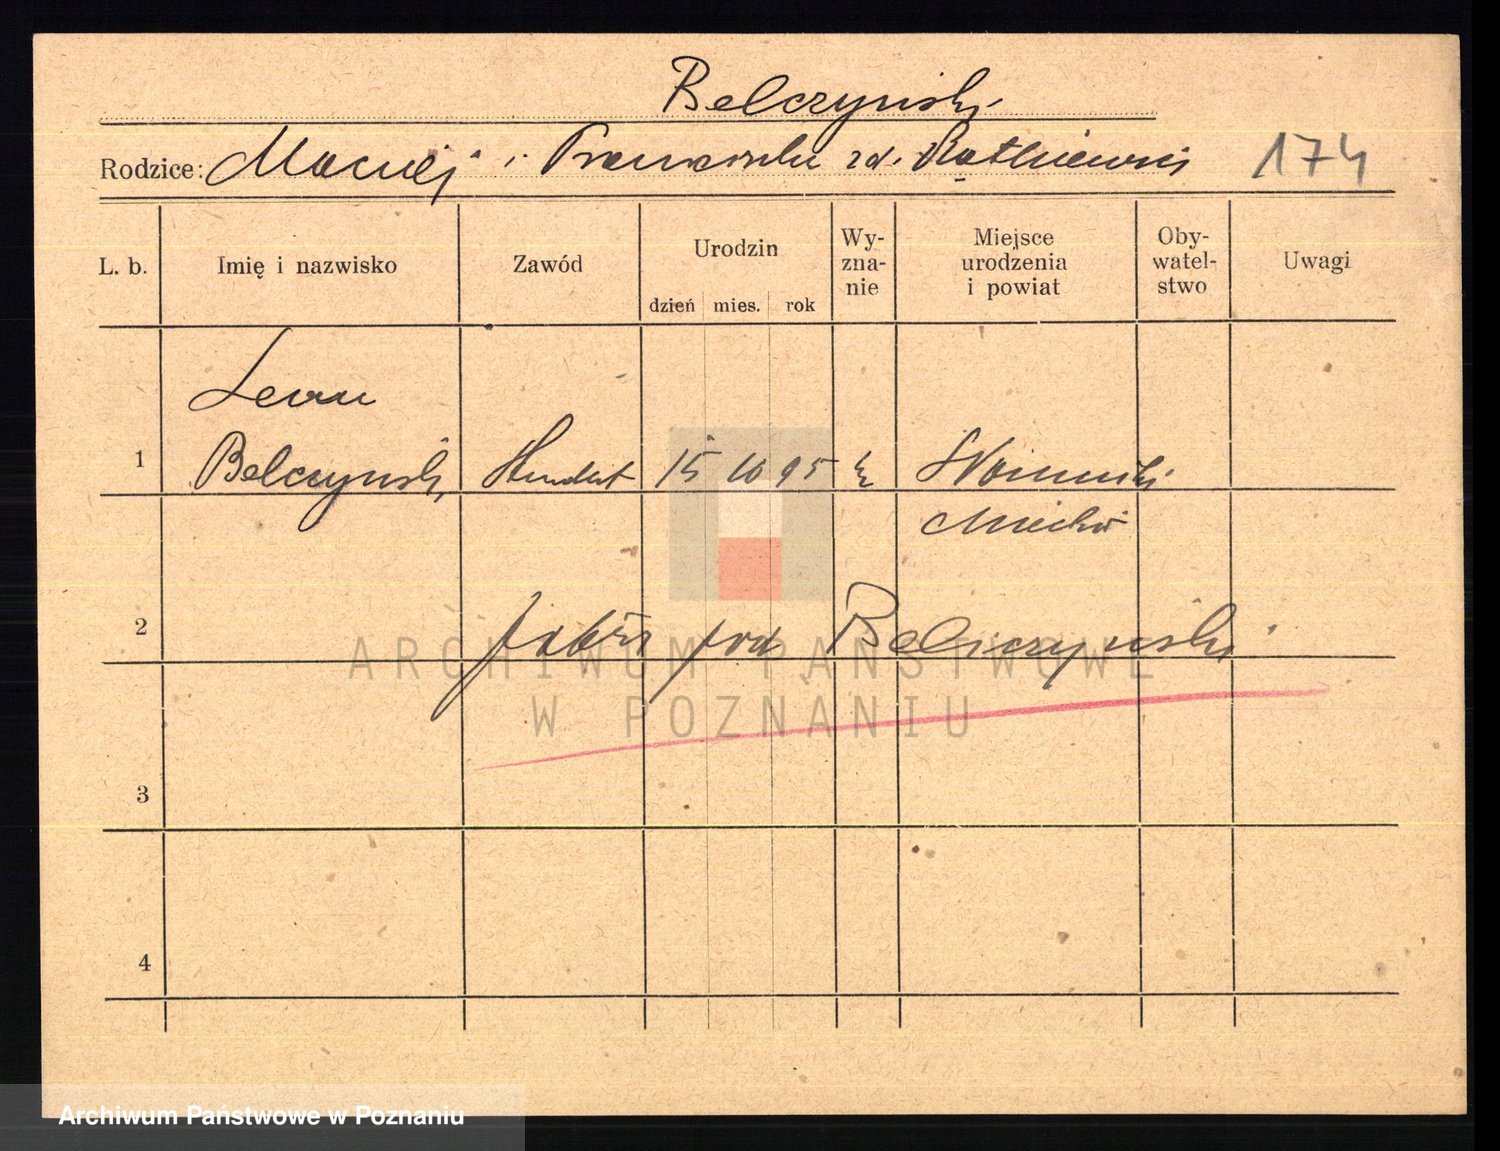 Belczyński
Rodzice: Maciej i Franciszka zd. Ratkiewicz 174
L. b. Imię i nazwisko Zawód Urodzin dzień mies. rok Wy-zna-nie Miejsce urodzenia i powiat Oby-watel-stwo Uwagi
Leon
1 Belczyński Student 15 10 95
Miechów
2 pod Beliczyński
3
4
ARCHIWUM PAŃSTWOWE
W POZNANIU
Archiwum Państwowe w Poznaniu